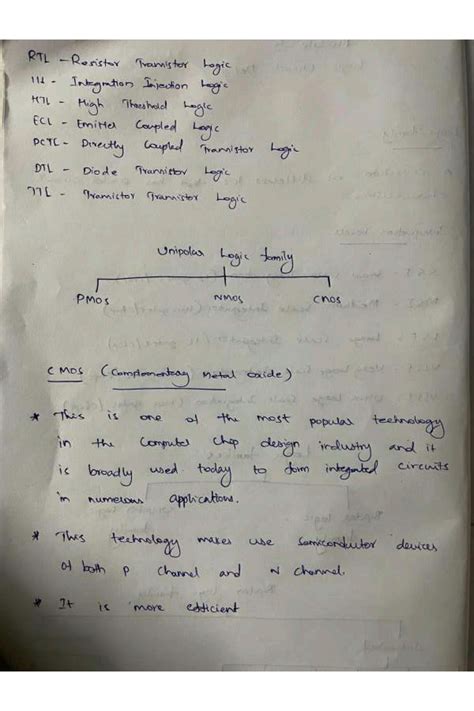 RTL - Resistor Transistor Logic
IIL - Integration Injection Logic
HTL - High Threshold Logic
ECL - Emitter Coupled Logic
DCTL - Directly Coupled Transistor Logic
DTL - Diode Transistor Logic
TTL - Transistor Transistor Logic
Unipolar Logic family
PMOS NMOS CMOS
CMOS (Complementary Metal Oxide)
* This is one of the most popular technology
in the Computer Chip design industry and it
is broadly used today to form integrated circuits
in numerous applications.
* This technology makes use semiconductor devices
of both P channel and N channel.
* It is more efficient